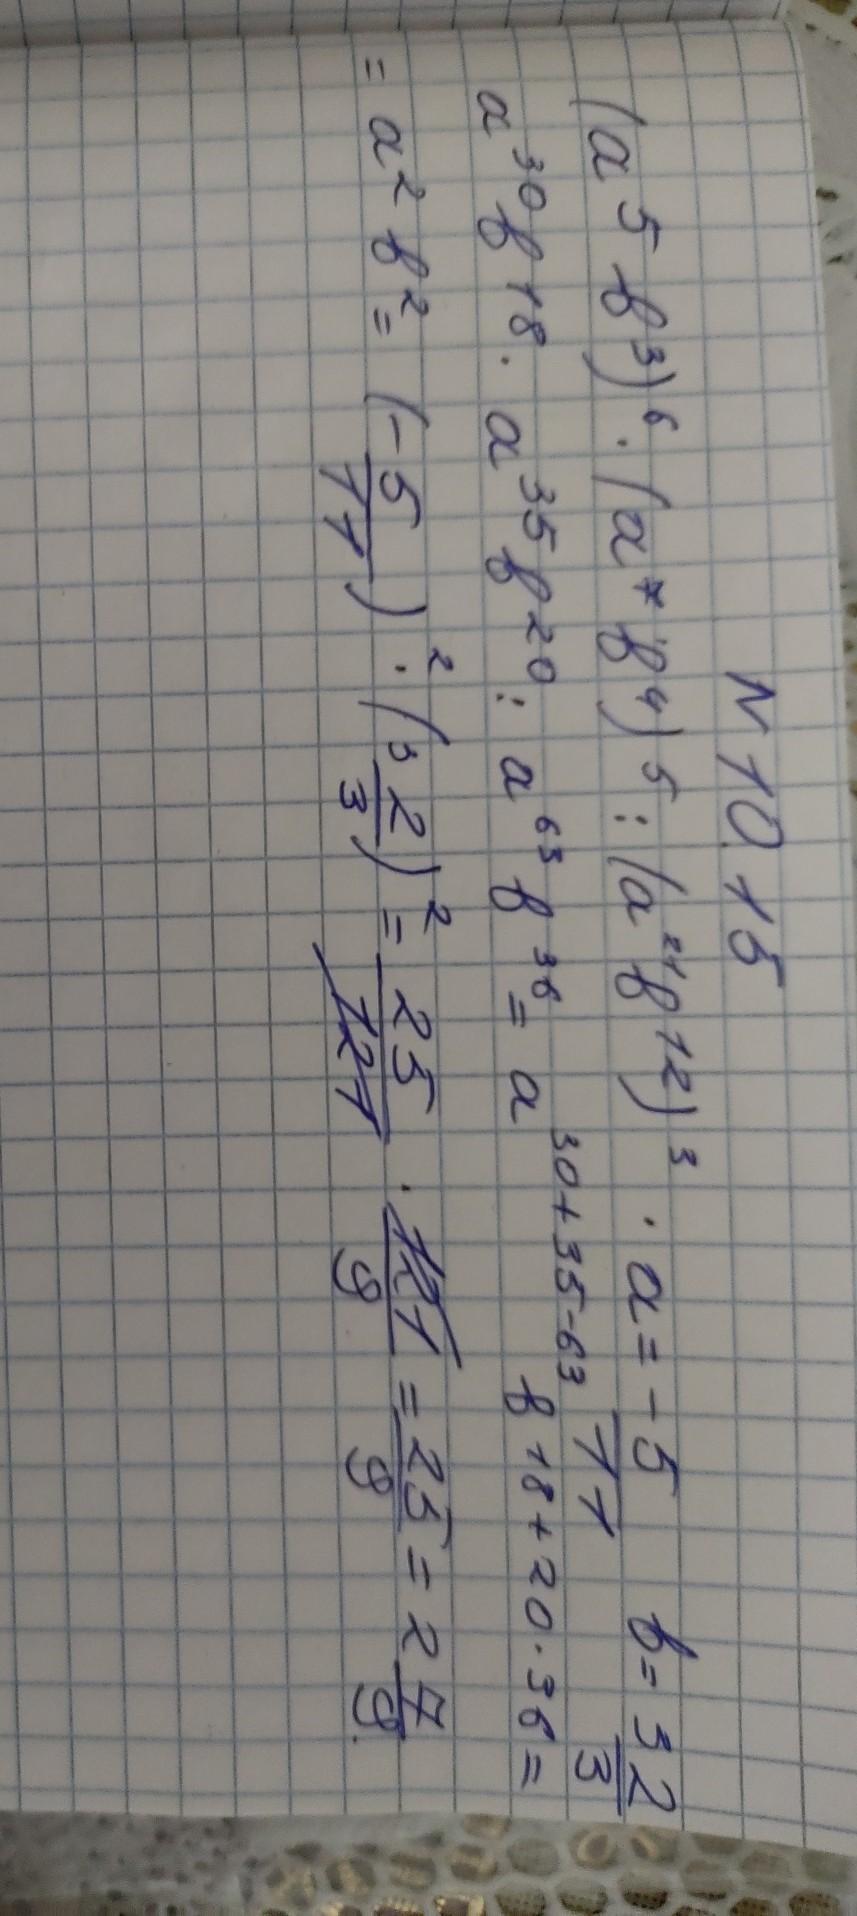 N 10.15
(a⁵b³)⁶ · (a⁷b⁴)⁵ : (a²¹b¹²)³ · a = -5/11 b = 3 2/3
a³⁰b¹⁸ · a³⁵b²⁰ : a⁶³b³⁶ = a³⁰⁺³⁵⁻⁶³ b¹⁸⁺²⁰·³⁶ =
= a²b² = (-5/11)² · (3 2/3)² = 25/121 · 121/9 = 25/9 = 2 7/9.